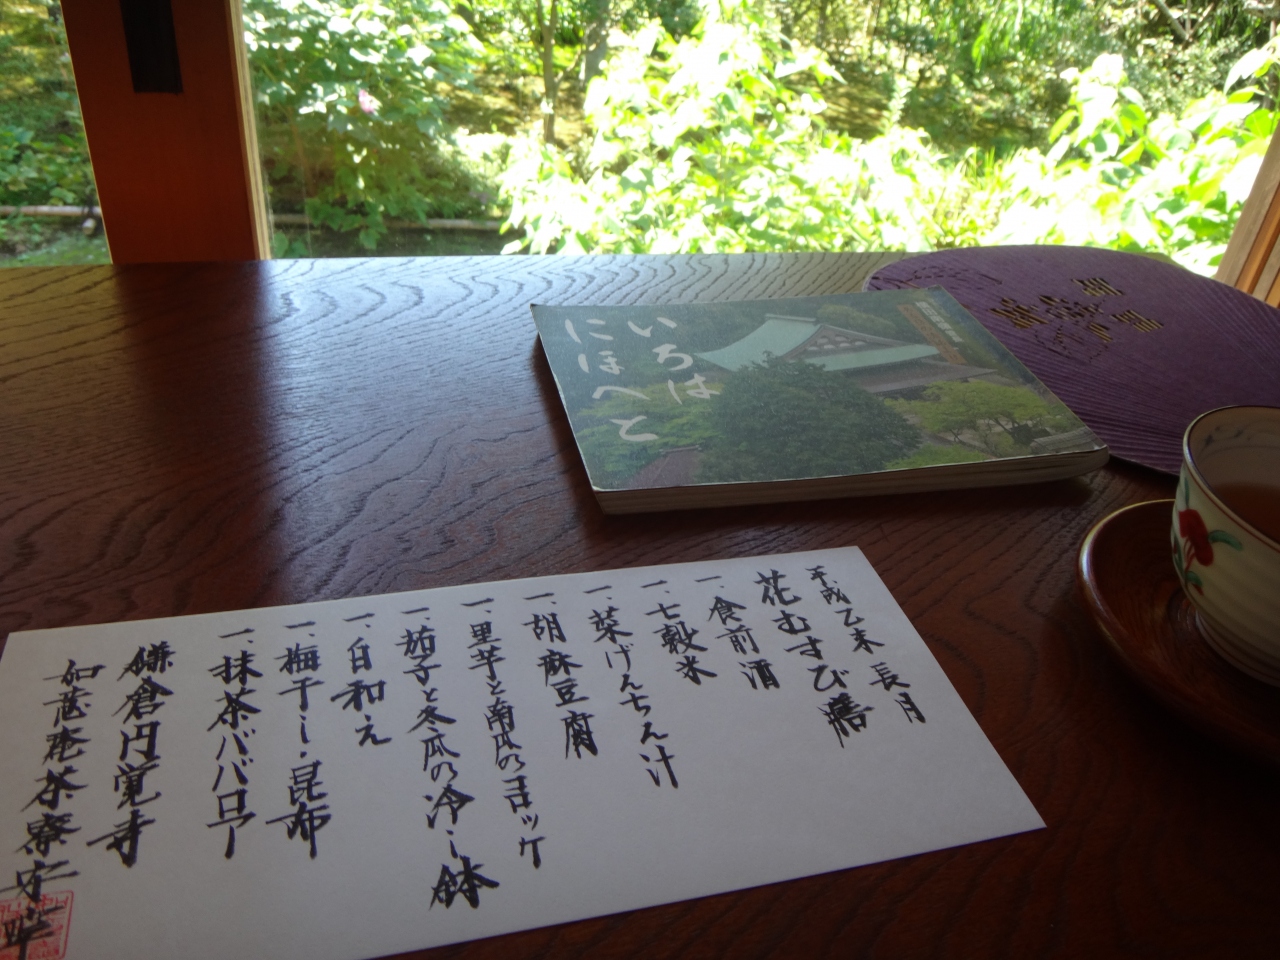 平成乙未 長月
花むすび膳
一、食前酒
一、七穀米
一、菜げんちん汁
一、胡麻豆腐
一、里芋と南瓜のコロッケ
一、茄子と冬瓜の冷し鉢
一、白和え
一、梅干し・昆布
一、抹茶ババロア
鎌倉円覚寺
如意庵茶寮
いろは
にほへと